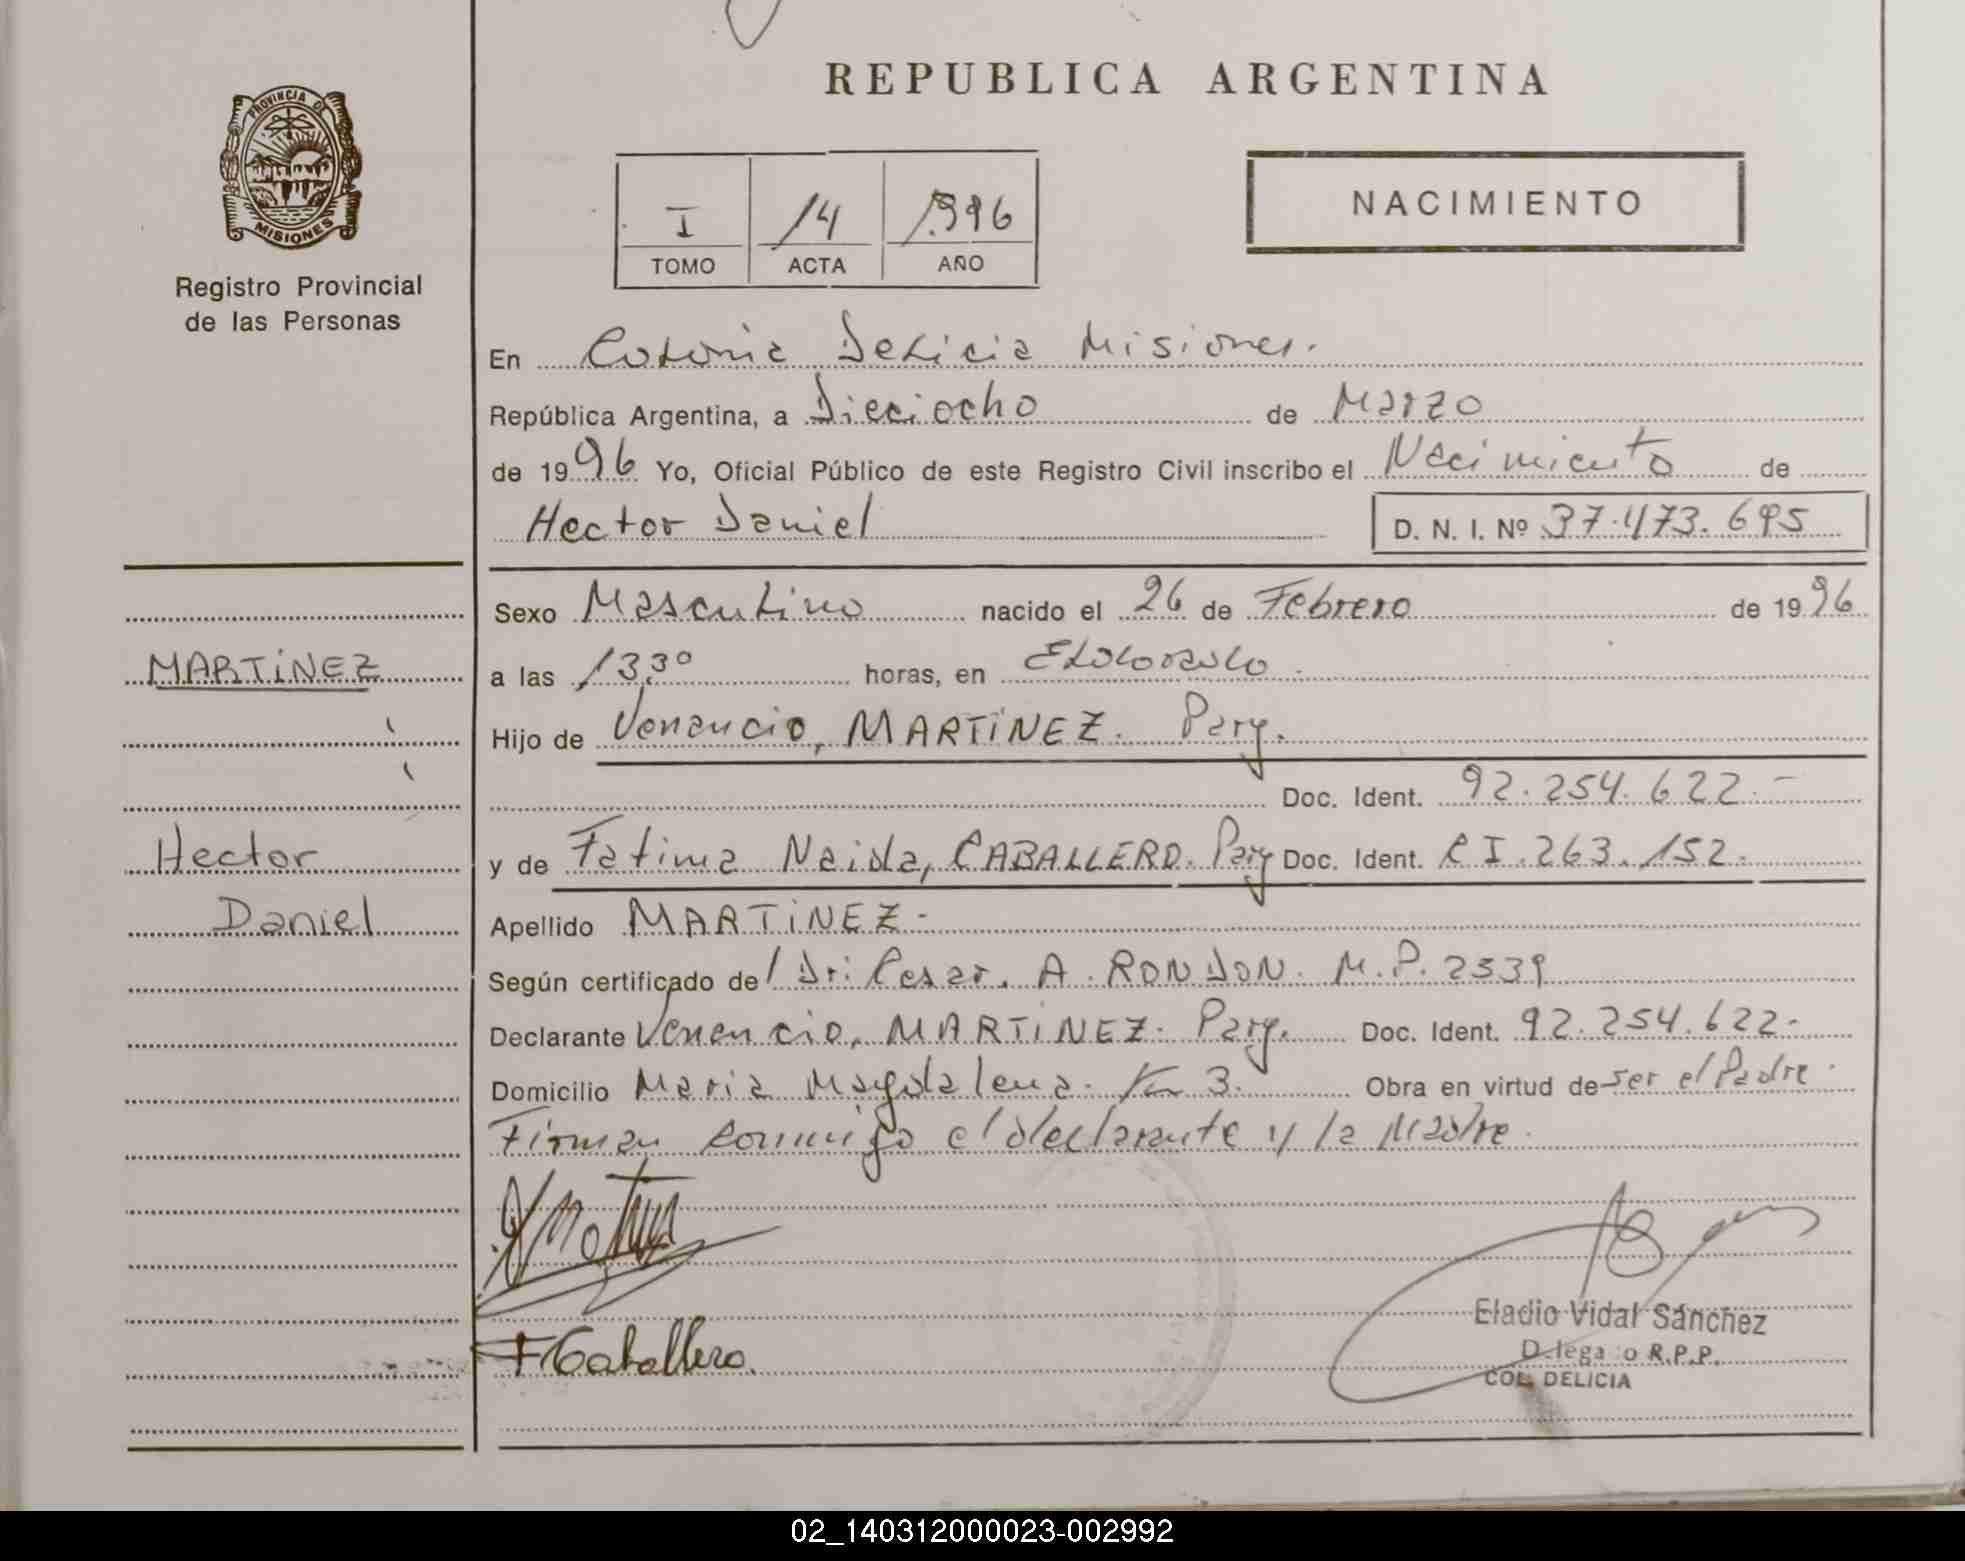 REPUBLICA ARGENTINA
PROVINCIA DE
MISIONES
Registro Provincial
de las Personas
I 14 1.996
TOMO ACTA AÑO
NACIMIENTO
En Colonia Delicia Misiones.
República Argentina, a Dieciocho de Marzo
de 1996 Yo, Oficial Público de este Registro Civil inscribo el Nacimiento de
Hector Daniel D. N. I. Nº 37.473.695
Sexo Masculino nacido el 26 de Febrero de 1996
MARTiNEZ
a las 13,30 horas, en Eldorado.
Hijo de Venancio, MARTiNEZ. Parg.
Doc. Ident. 92.254.622.-
Hector
y de Fatima Naida, CABALLERO. Parg Doc. Ident. C I.263.152.
Daniel
Apellido MARTiNEZ-
Según certificado del Dr: Cesar. A. RONDON. M.P. 2539
Declarante Venancio, MARTiNEZ. Parg. Doc. Ident. 92.254.622.-
Domicilio Maria Magdalena. Km 3. Obra en virtud de ser el Padre.
Firman conmigo el declarante y la Madre.
F Caballero.
Eladio Vidal Sánchez
Delegado R.P.P.
COL. DELICIA
02_140312000023-002992